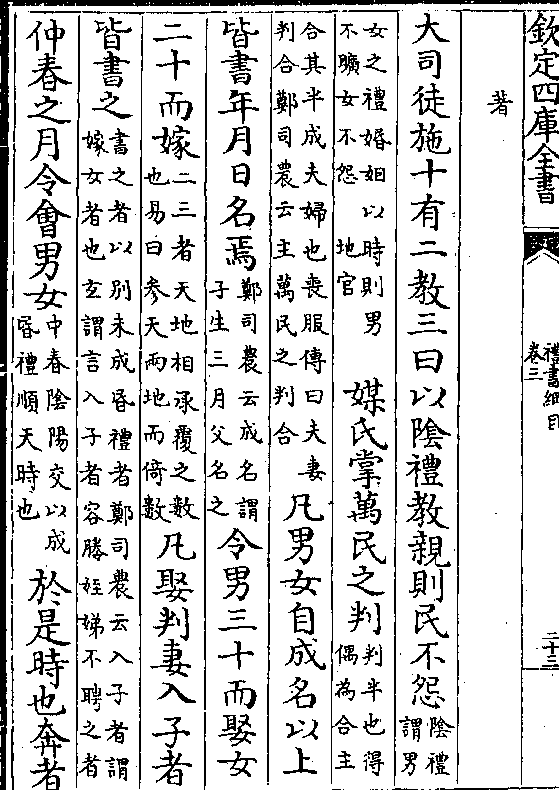 欽定四庫全書
禮書綱目
卷三
二十三
著
大司徒施十有二教三曰以陰禮教親則民不怨陰禮謂男
女之禮婚姻以時則男不曠女不怨 地官 媒氏掌萬民之判判半也得偶為合主
合其半成夫婦也喪服傳曰夫妻判合鄭司農云主萬民之判合 凡男女自成名以上
皆書年月日名焉鄭司農云成名謂子生三月父名之 令男三十而娶女
二十而嫁二三者天地相承覆之數也易曰參天兩地而倚數 凡娶判妻入子者
皆書之書之者以別未成昏禮者鄭司農云入子者謂嫁女者也玄謂言入子者容媵姪娣不聘之者
仲春之月令會男女中春陰陽交以成昏禮順天時也 於是時也奔者